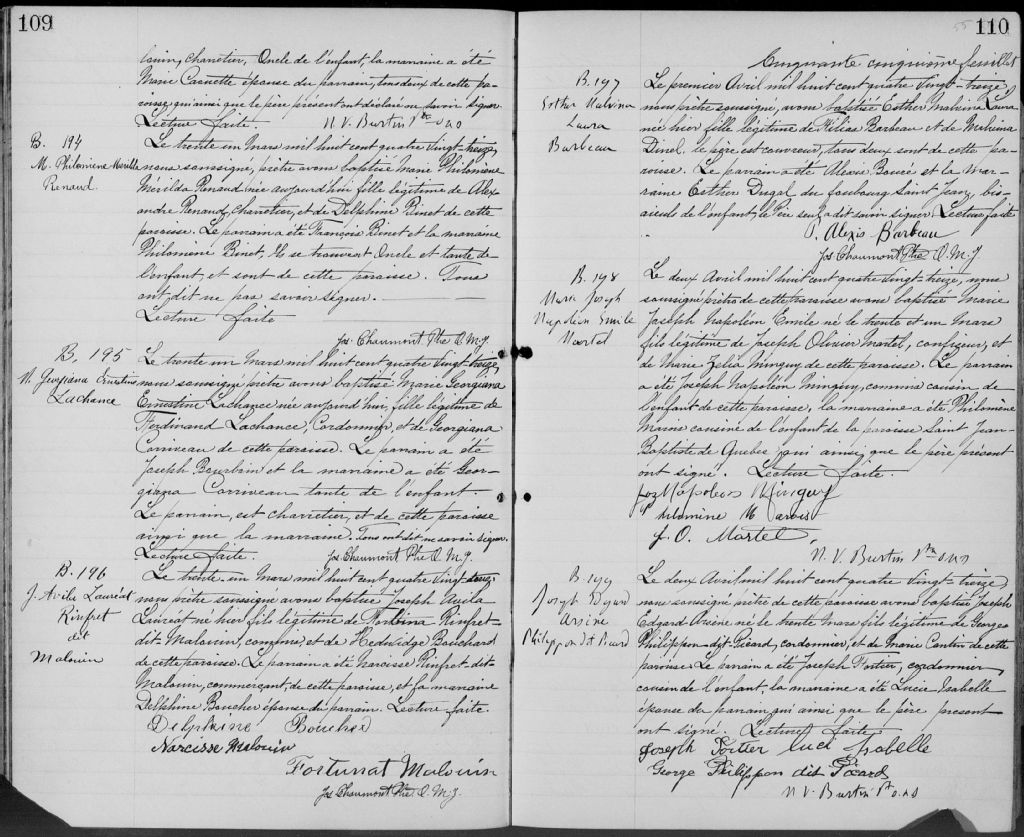 109
louin, charetier, Oncle de l'enfant, la marraine a été
Marie Caouette épouse du parrain, tous deux de cette pa-
roisse, qui ainsi que le père présent ont déclaré ne savoir signer
Lecture faite. N. V. Burtin Ptre o.m.i.
B. 194
M. Philomène Mérilda
Renaud.
Le trente un Mars mil huit cent quatre vingt-treize,
nous soussigné, prêtre avons baptisé Marie Philomène
Mérilda Renaud née aujourd'hui fille légitime de Alex
andre Renaud, charretier, et de Delphine Binet de cette
paroisse. Le parrain a été François Binet et la marraine
Philomène Binet, Ils se trouvent Oncle et tante de
l'enfant, et sont de cette paroisse. Tous
ont dit ne pas savoir signer.
Lecture faite
Jos Chaumont Ptre O.M.J.
B. 195
M. Georgiana Ernestine
Lachance
Le trente un Mars mil huit cent quatre vingt treize,
nous soussigné prêtre avons baptisé Marie Georgiana
Ernestine Lachance née aujourd'hui, fille légitime de
Ferdinand Lachance, Cordonnier, et de Georgiana
Corriveau de cette paroisse. Le parrain a été
Joseph Bourbain et la marraine a été Geor-
giana Corriveau tante de l'enfant.
Le parrain, est charretier, et de cette paroisse
ainsi que la marraine. Tous ont dit ne savoir signer.
Lecture faite. Jos Chaumont Ptre O.M.J.
B. 196
J. Avila Lauréat
Rinfret
dit
Malouin
Le trente un Mars mil huit cent quatre vingt-treize
nous prêtre soussigné avons baptisé Joseph Avila
Lauréat né hier fils légitime de Fortunat Rinfret-
dit-Malouin, commis, et de Hedwidge Bouchard
de cette paroisse. Le parrain a été Narcisse Rinfret-dit-
Malouin, commerçant, de cette paroisse, et la marraine
Delphine Boucher épouse du parrain. Lecture faite.
Delphine Boucher
Narcisse Malouin
Fortunat Malouin
Jos Chaumont Ptre O.M.J.
55 110
Cinquante cinquième feuillet
B. 197
Esther Malvina
Laura
Barbeau
Le premier Avril mil huit cent quatre vingt-treize,
nous prêtre soussigné, avons baptisé Esther Malvina Laura
née hier fille légitime de Barbeau et de Malvina
le père est couvreur, tous deux sont de cette pa-
roisse. Le parrain a été et la mar-
raine Esther Dugal du faubourg Saint Jean, bis-
aieuls de l'enfant, le Père seul a dit savoir signer. Lecture faite
P. Alexis Barbeau
Jos Chaumont Ptre O.M.J.
B. 198
Marie Joseph
Napoléon Emile
Martel
Le deux Avril mil huit cent quatre vingt-treize, nous
soussigné prêtre de cette paroisse avons baptisé Marie
Joseph Napoléon Emile né le trente et un Mars
fils légitime de Joseph Olivier Martel, confiseur, et
de Marie Zélia Minguy de cette paroisse. Le parrain
a été Joseph Napoléon Minguy, commis cousin de
l'enfant de cette paroisse, la marraine a été Philomène
Marois cousine de l'enfant de la paroisse Saint Jean-
Baptiste de Québec, qui ainsi que le père présent
ont signé. Lecture faite.
Jos Napoléon Minguy
Philomène Marois
J. O. Martel,
N. V. Burtin Ptre o.m.i.
B. 199
Joseph Edgard
Arsène
Philippon dit Picard
Le deux Avril mil huit cent quatre vingt-treize
nous soussigné prêtre de cette paroisse avons baptisé Joseph
Edgard Arsène né le trente Mars fils légitime de Georges
Philippon-dit-Picard, cordonnier, et de Marie Cantin de cette
paroisse. Le parrain a été Joseph Poitier, cordonnier,
cousin de l'enfant, la marraine a été Lucie Isabelle
épouse du parrain qui ainsi que le père présent
ont signé. Lecture faite
Joseph Poitier Luci Isabelle
George Philippon dit Picard
N. V. Burtin Ptre o.m.i.